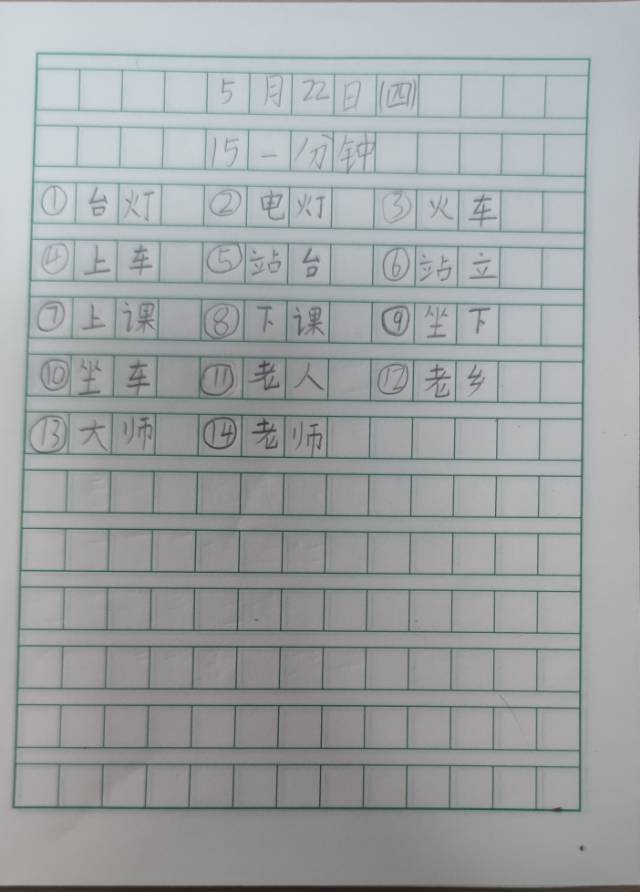 5月22日(四)
15一分钟
①台灯 ②电灯 ③火车
④上车 ⑤站台 ⑥站立
⑦上课 ⑧下课 ⑨坐下
⑩坐车 ⑪老人 ⑫老乡
⑬大师 ⑭老师